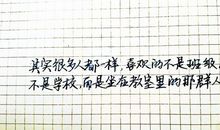 其实很多人都一样,喜欢的不是班级,
不是学校,而是坐在教室里的那群人